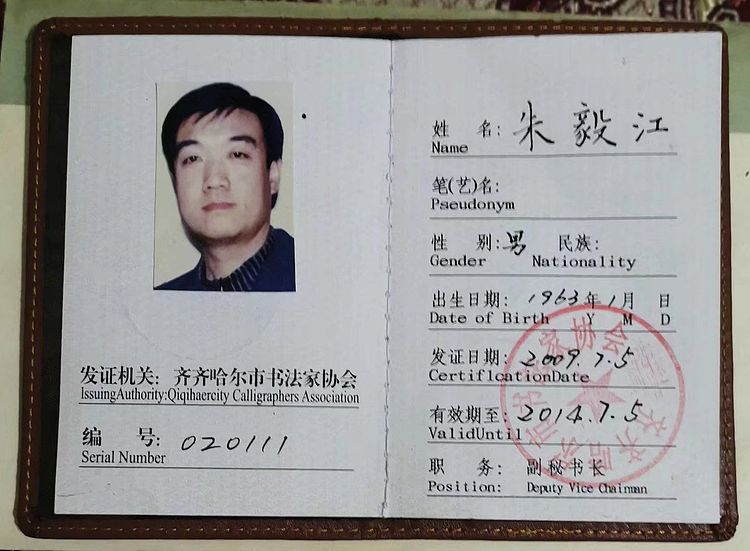 发证机关：齐齐哈尔市书法家协会
IssuingAuthority:Qiqihaercity Calligraphers Association
编 号：020111
Serial Number
姓 名：朱毅江
Name
笔(艺)名：
Pseudonym
性 别：男 民族：
Gender Nationality
出生日期：1963年1月 日
Date of Birth Y M D
发证日期：2009.7.5
CertiflcationDate
有效期至：2014.7.5
ValidUntil
职 务：副秘书长
Position: Deputy Vice Chainman
齐齐哈尔市书法家协会